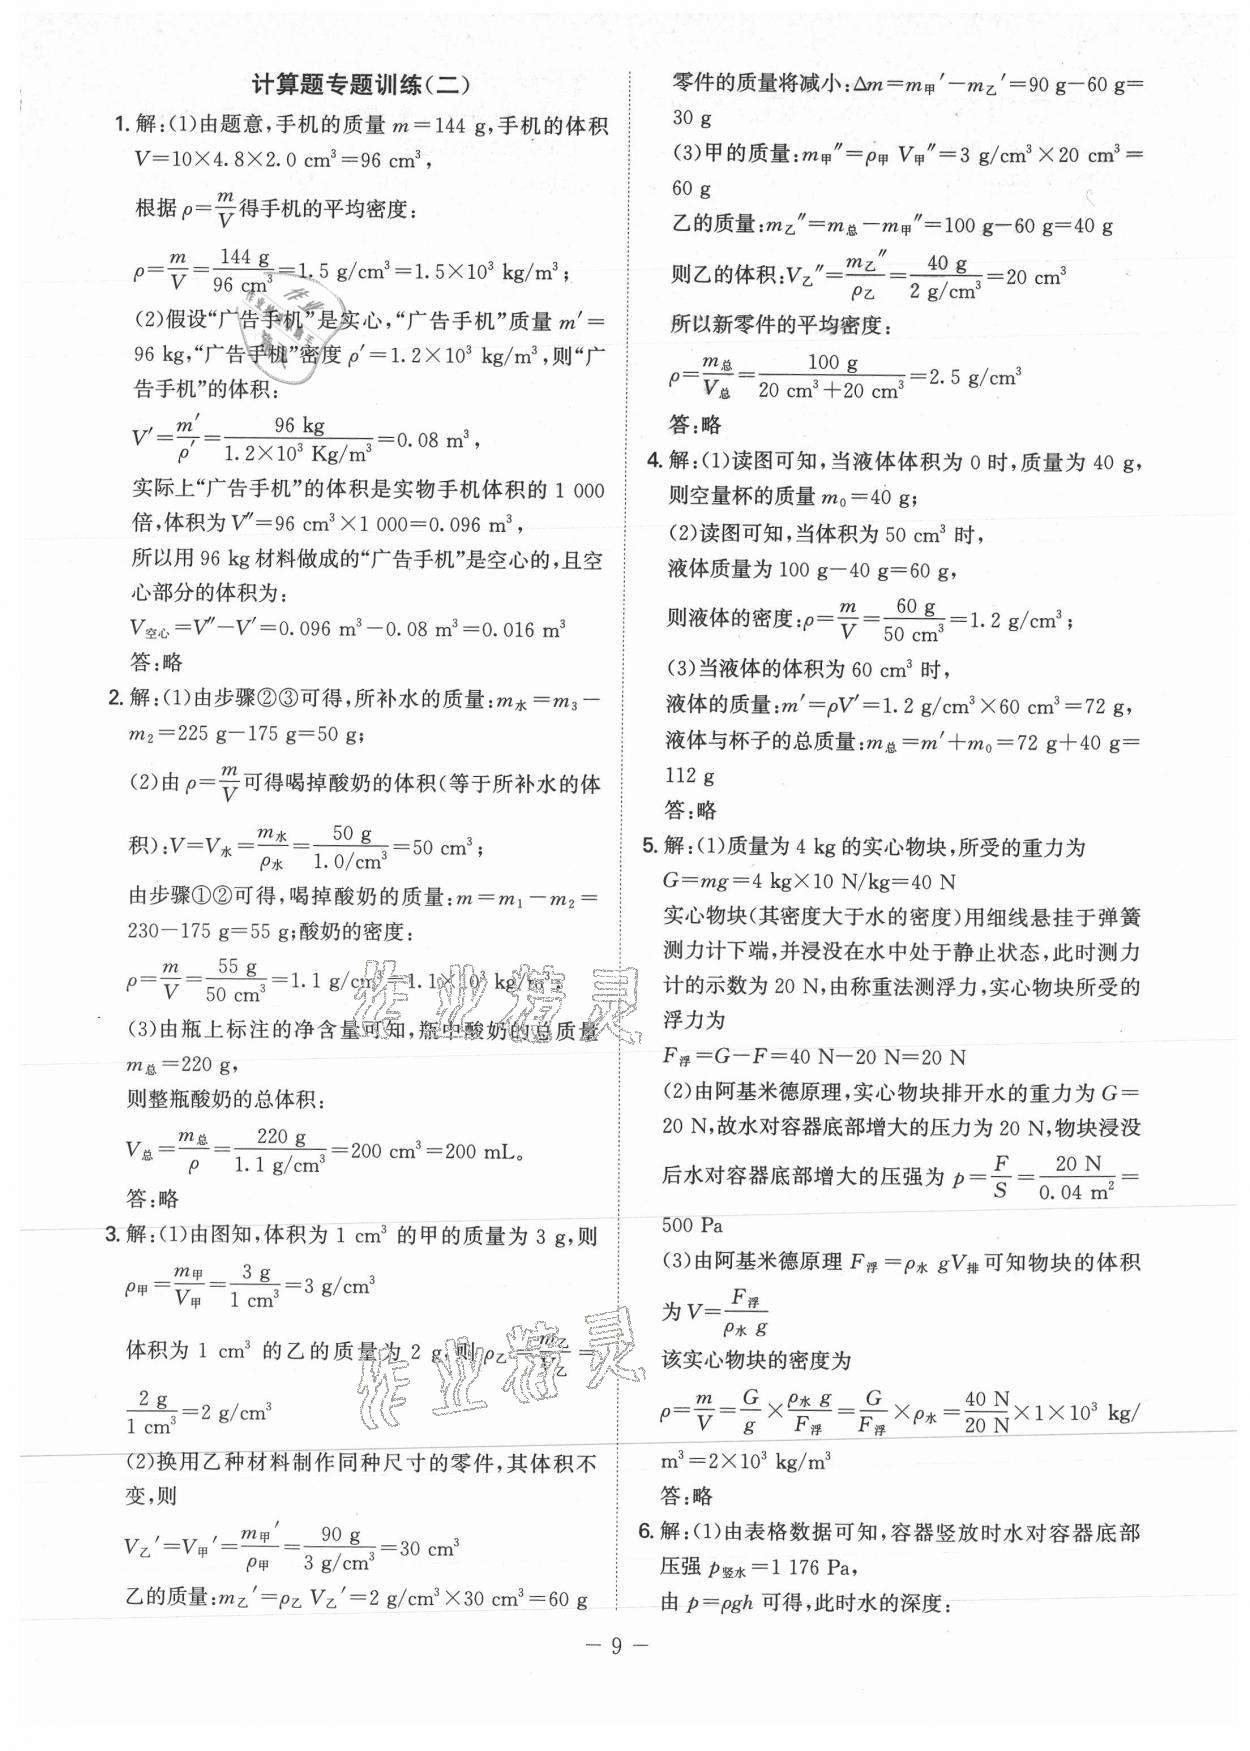 计算题专题训练(二)
1. 解:(1)由题意,手机的质量 m=144 g,手机的体积
V=10×4.8×2.0 cm³=96 cm³,
根据 ρ=m/V得手机的平均密度:
ρ=m/V=144 g/96 cm³=1.5 g/cm³=1.5×10³ kg/m³;
(2)假设“广告手机”是实心,“广告手机”质量 m′=
96 kg,“广告手机”密度 ρ′=1.2×10³ kg/m³,则“广
告手机”的体积:
V′=m′/ρ′=96 kg/1.2×10³ Kg/m³=0.08 m³,
实际上“广告手机”的体积是实物手机体积的 1 000
倍,体积为 V″=96 cm³×1 000=0.096 m³,
所以用 96 kg 材料做成的“广告手机”是空心的,且空
心部分的体积为:
V空心=V″−V′=0.096 m³−0.08 m³=0.016 m³
答:略
2. 解:(1)由步骤②③可得,所补水的质量:m水=m₃−
m₂=225 g−175 g=50 g;
(2)由 ρ=m/V可得喝掉酸奶的体积(等于所补水的体
积):V=V水=m水/ρ水=50 g/1.0/cm³=50 cm³;
由步骤①②可得,喝掉酸奶的质量:m=m₁−m₂=
230−175 g=55 g;酸奶的密度:
ρ=m/V=55 g/50 cm³=1.1 g/cm³=1.1×10³ kg/m³;
(3)由瓶上标注的净含量可知,瓶中酸奶的总质量
m总=220 g,
则整瓶酸奶的总体积:
V总=m总/ρ=220 g/1.1 g/cm³=200 cm³=200 mL。
答:略
3. 解:(1)由图知,体积为 1 cm³ 的甲的质量为 3 g,则
ρ甲=m甲/V甲=3 g/1 cm³=3 g/cm³
体积为 1 cm³ 的乙的质量为 2 g,则 ρ乙=m乙/V乙=
2 g/1 cm³=2 g/cm³
(2)换用乙种材料制作同种尺寸的零件,其体积不
变,则
V乙′=V甲′=m甲′/ρ甲=90 g/3 g/cm³=30 cm³
乙的质量:m乙′=ρ乙 V乙′=2 g/cm³×30 cm³=60 g
零件的质量将减小:Δm=m甲′−m乙′=90 g−60 g=
30 g
(3)甲的质量:m甲″=ρ甲 V甲″=3 g/cm³×20 cm³=
60 g
乙的质量:m乙″=m总−m甲″=100 g−60 g=40 g
则乙的体积:V乙″=m乙″/ρ乙=40 g/2 g/cm³=20 cm³
所以新零件的平均密度:
ρ=m总/V总=100 g/20 cm³+20 cm³=2.5 g/cm³
答:略
4. 解:(1)读图可知,当液体体积为 0 时,质量为 40 g,
则空量杯的质量 m₀=40 g;
(2)读图可知,当体积为 50 cm³ 时,
液体质量为 100 g−40 g=60 g,
则液体的密度:ρ=m/V=60 g/50 cm³=1.2 g/cm³;
(3)当液体的体积为 60 cm³ 时,
液体的质量:m′=ρV′=1.2 g/cm³×60 cm³=72 g,
液体与杯子的总质量:m总=m′+m₀=72 g+40 g=
112 g
答:略
5. 解:(1)质量为 4 kg 的实心物块,所受的重力为
G=mg=4 kg×10 N/kg=40 N
实心物块(其密度大于水的密度)用细线悬挂于弹簧
测力计下端,并浸没在水中处于静止状态,此时测力
计的示数为 20 N,由称重法测浮力,实心物块所受的
浮力为
F浮=G−F=40 N−20 N=20 N
(2)由阿基米德原理,实心物块排开水的重力为 G=
20 N,故水对容器底部增大的压力为 20 N,物块浸没
后水对容器底部增大的压强为 p=F/S=20 N/0.04 m²=
500 Pa
(3)由阿基米德原理 F浮=ρ水 gV排可知物块的体积
为 V=F浮/ρ水 g
该实心物块的密度为
ρ=m/V=G/g×ρ水 g/F浮=G/F浮×ρ水=40 N/20 N×1×10³ kg/
m³=2×10³ kg/m³
答:略
6. 解:(1)由表格数据可知,容器竖放时水对容器底部
压强 p竖水=1 176 Pa,
由 p=ρgh 可得,此时水的深度:
— 9 —
作业精灵
作业精灵